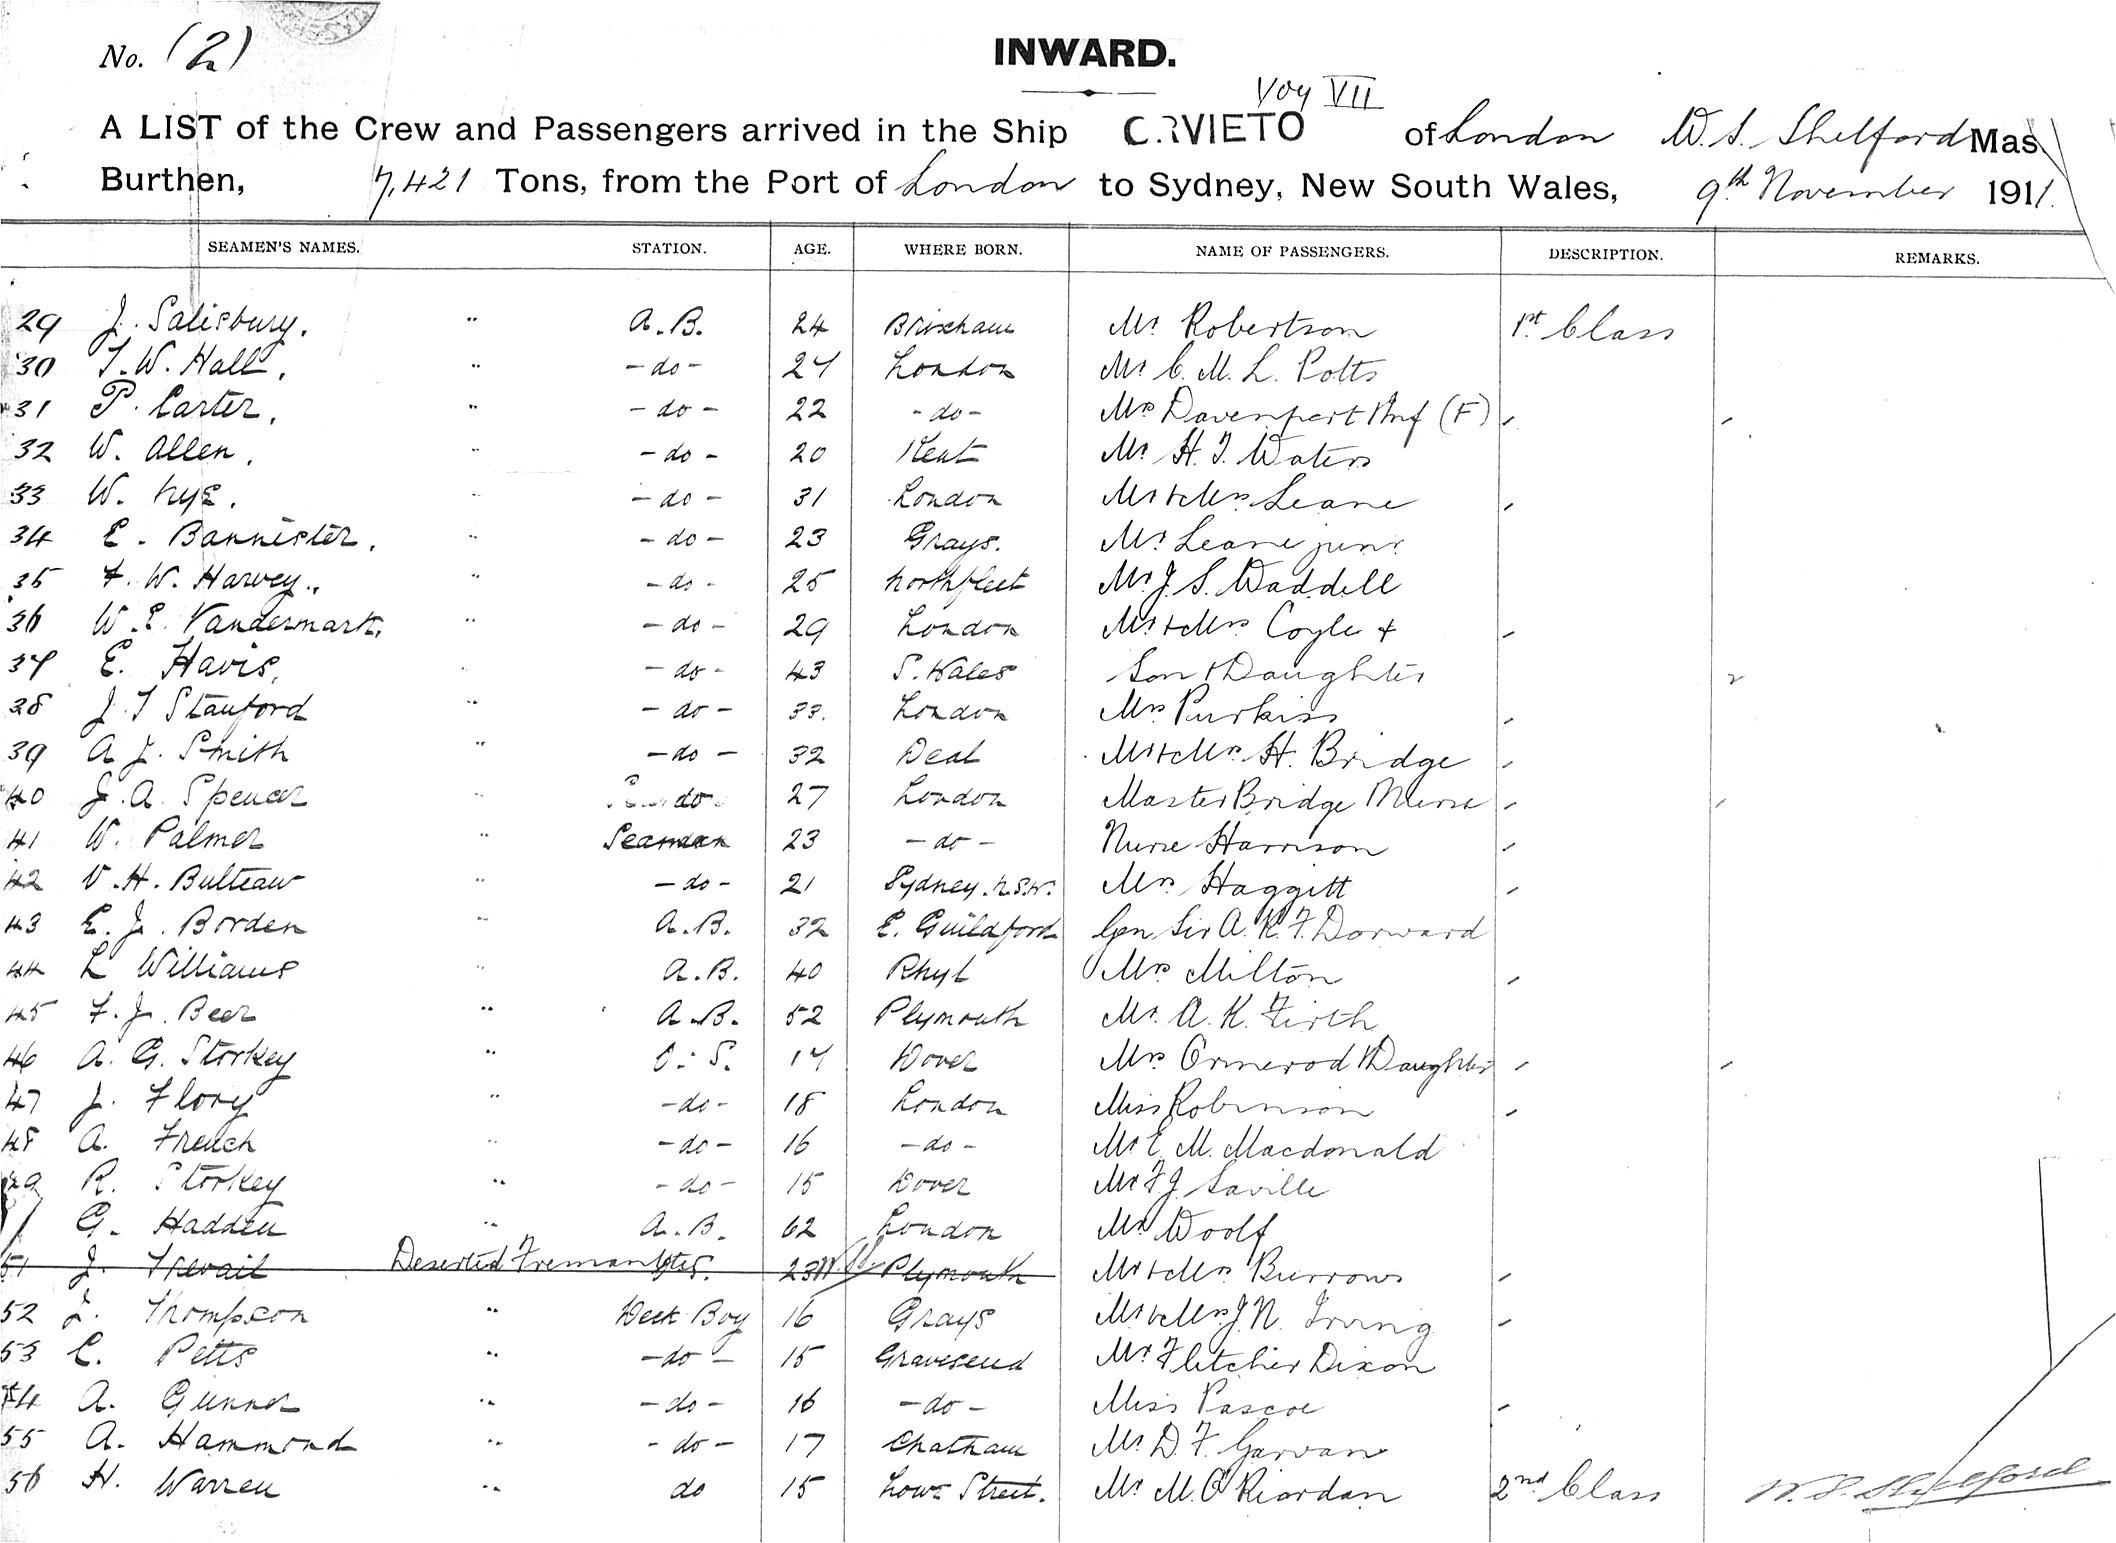 No. (2)
INWARD.
Voy VII
A LIST of the Crew and Passengers arrived in the Ship ORVIETO of London W. S. Shelford Mas
Burthen, 7,421 Tons, from the Port of London to Sydney, New South Wales, 9th November 1911.
SEAMEN'S NAMES. STATION. AGE. WHERE BORN. NAME OF PASSENGERS. DESCRIPTION. REMARKS.
29 J. Salisbury. " A.B. 24 Brixham Mr Robertson 1st Class
30 T. W. Hall. " -do- 27 London Mr C. M. L. Potts
31 P. Carter. " -do- 22 -do- Mrs Davenport (F)
32 W. Allen. " -do- 20 Kent Mr H. J. Waters
33 W. Nye. " -do- 31 London Mr & Mrs Leane
34 E. Bannister. " -do- 23 Grays. Mr Leane junr
35 F. W. Harvey. " -do- 25 Northfleet Mr J. S. Waddell
36 W. E. Vandermark. " -do- 29 London Mr & Mrs Coyle &
37 E. Havis. -do- 43 S. Wales Son & Daughter
38 J. T Stanford " -do- 33. London Mrs Purkiss
39 A J. Smith " -do- 32 Deal Mr & Mrs H. Bridge
40 J. A. Spencer " do 27 London Master Bridge & Nurse
41 W. Palmer " Seaman 23 -do- Nurse Harrison
42 V. H. Bulteaw " -do- 21 Sydney. N.S.W. Mrs Haggitt
43 E. J. Borden " A.B. 32 E. Guildford Gen Sir A. R. F. Dorward
44 L Williams " A.B. 40 Rhyl Mrs Milton
45 F. J. Beer " A.B. 52 Plymouth Mr. A. K. Firth
46 A. G. Storkey " O.S. 17 Dover Mrs Ormerod & Daughter
47 J. Flory " -do- 18 London Miss Robinson
48 A. French " -do- 16 -do- Mr E. M. Macdonald
49 R. Storkey " -do- 15 Dover Mr F J. Saville
G. Hadden " A.B. 62 London Mr Woolf
51 J. Trevail Deserted Fremantle 23 Plymouth Mr & Mrs Burrows
52 J. Thompson " Deck Boy 16 Grays Mr & Mrs J. N. Irving
53 C. Petts " -do- 15 Gravesend Mr Fletcher Dixon
54 A. Gunner " -do- 16 -do- Miss Pascoe
55 A. Hammond " -do- 17 Chatham Mr D. F. Garvan
56 H. Warren " do 15 Lowr Street. Mr M. O'Riordan 2nd Class W. S. Shelford